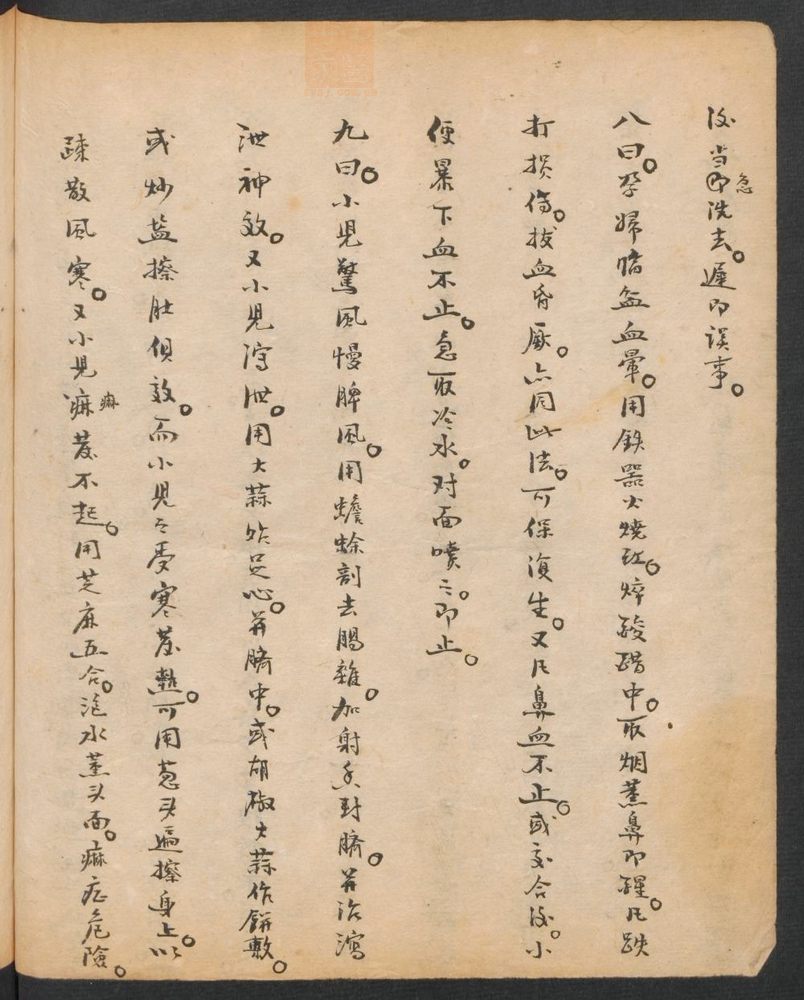 後当即急洗去。遲即误事。
八曰。孕婦临盆血暈。用鉄器火燒红。焠酸醋中。取烟薰鼻即醒。凡跌
打损傷。拔血昏厥。亦同此法。可保復生。又凡鼻血不止。或交合後。小
便暴下血不止。急取冷水。对面喷之。即止。
九曰。小児驚風慢脾風。用蟾蜍剖去腸雜。加射香对臍。并治瀉
泄神效。又小児泻泄。用大蒜贴足心。并臍中。或胡椒大蒜作餅敷。
或炒盐擦肚俱效。而小児之受寒发熱。可用葱头遍擦身上。以
疎散風寒。又小児麻痳发不起。用芝麻五合。泡水薰头面。痳症危險。